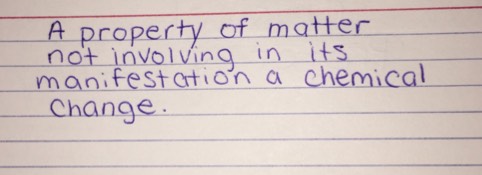 A property of matter
not involving in its
manifestation a chemical
change.